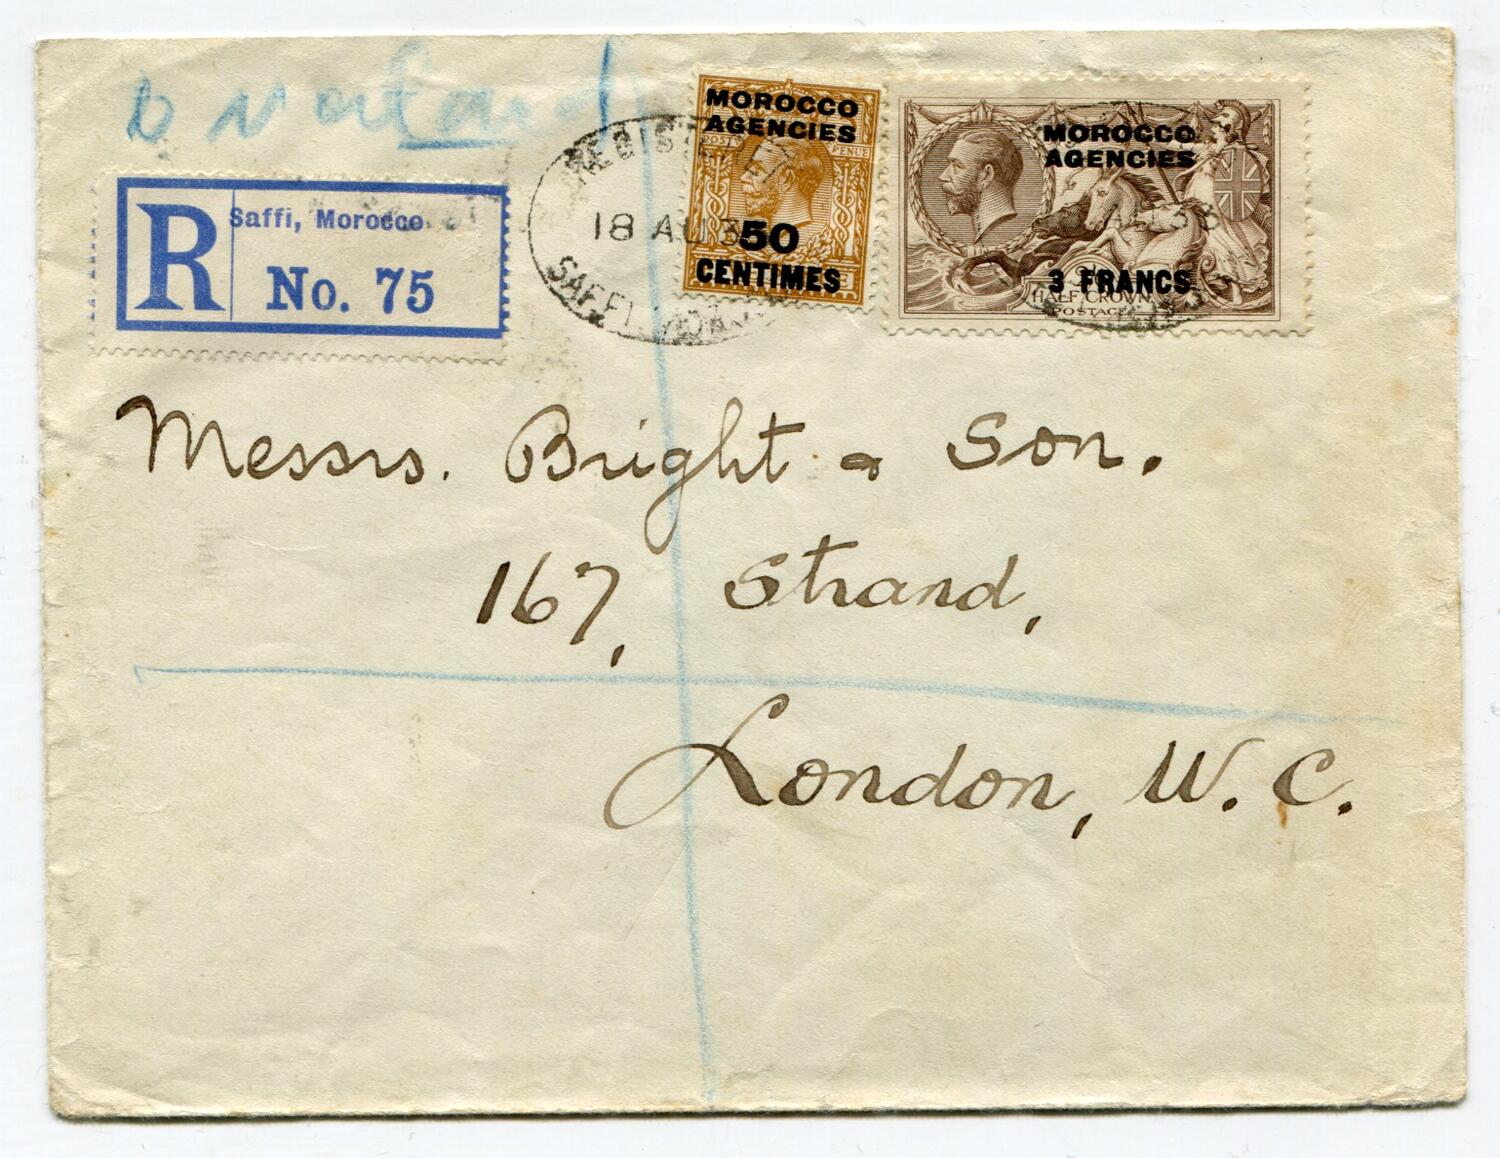 Saffi, Morocco
R No. 75
REGISTERED
18 AU 3
SAFFI
MOROCCO
AGENCIES
50
CENTIMES
MOROCCO
AGENCIES
3 FRANCS
HALF CROWN
POSTAGE
Messrs. Bright & Son.
167, Strand,
London, W.C.